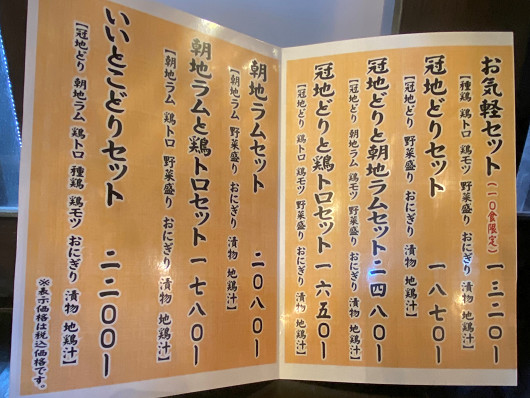 お気軽セット(二〇食限定) 一三二〇ー
【種鶏 鶏トロ 鶏モツ 野菜盛り おにぎり 漬物 地鶏汁】
冠地どりセット 一八七〇ー
【冠地どり 野菜盛り おにぎり 漬物 地鶏汁】
冠地どりと朝地ラムセット 二四八〇ー
【冠地どり 朝地ラム 鶏モツ 野菜盛り おにぎり 漬物 地鶏汁】
冠地どりと鶏トロセット 一六五〇ー
【冠地どり 鶏トロ 鶏モツ 野菜盛り おにぎり 漬物 地鶏汁】
朝地ラムセット 二〇八〇ー
【朝地ラム 野菜盛り おにぎり 漬物 地鶏汁】
朝地ラムと鶏トロセット 一七八〇ー
【朝地ラム 鶏トロ 野菜盛り おにぎり 漬物 地鶏汁】
いいとこどりセット 二二〇〇ー
【冠地どり 朝地ラム 鶏トロ 種鶏 鶏モツ おにぎり 漬物 地鶏汁】
※表示価格は税込価格です。